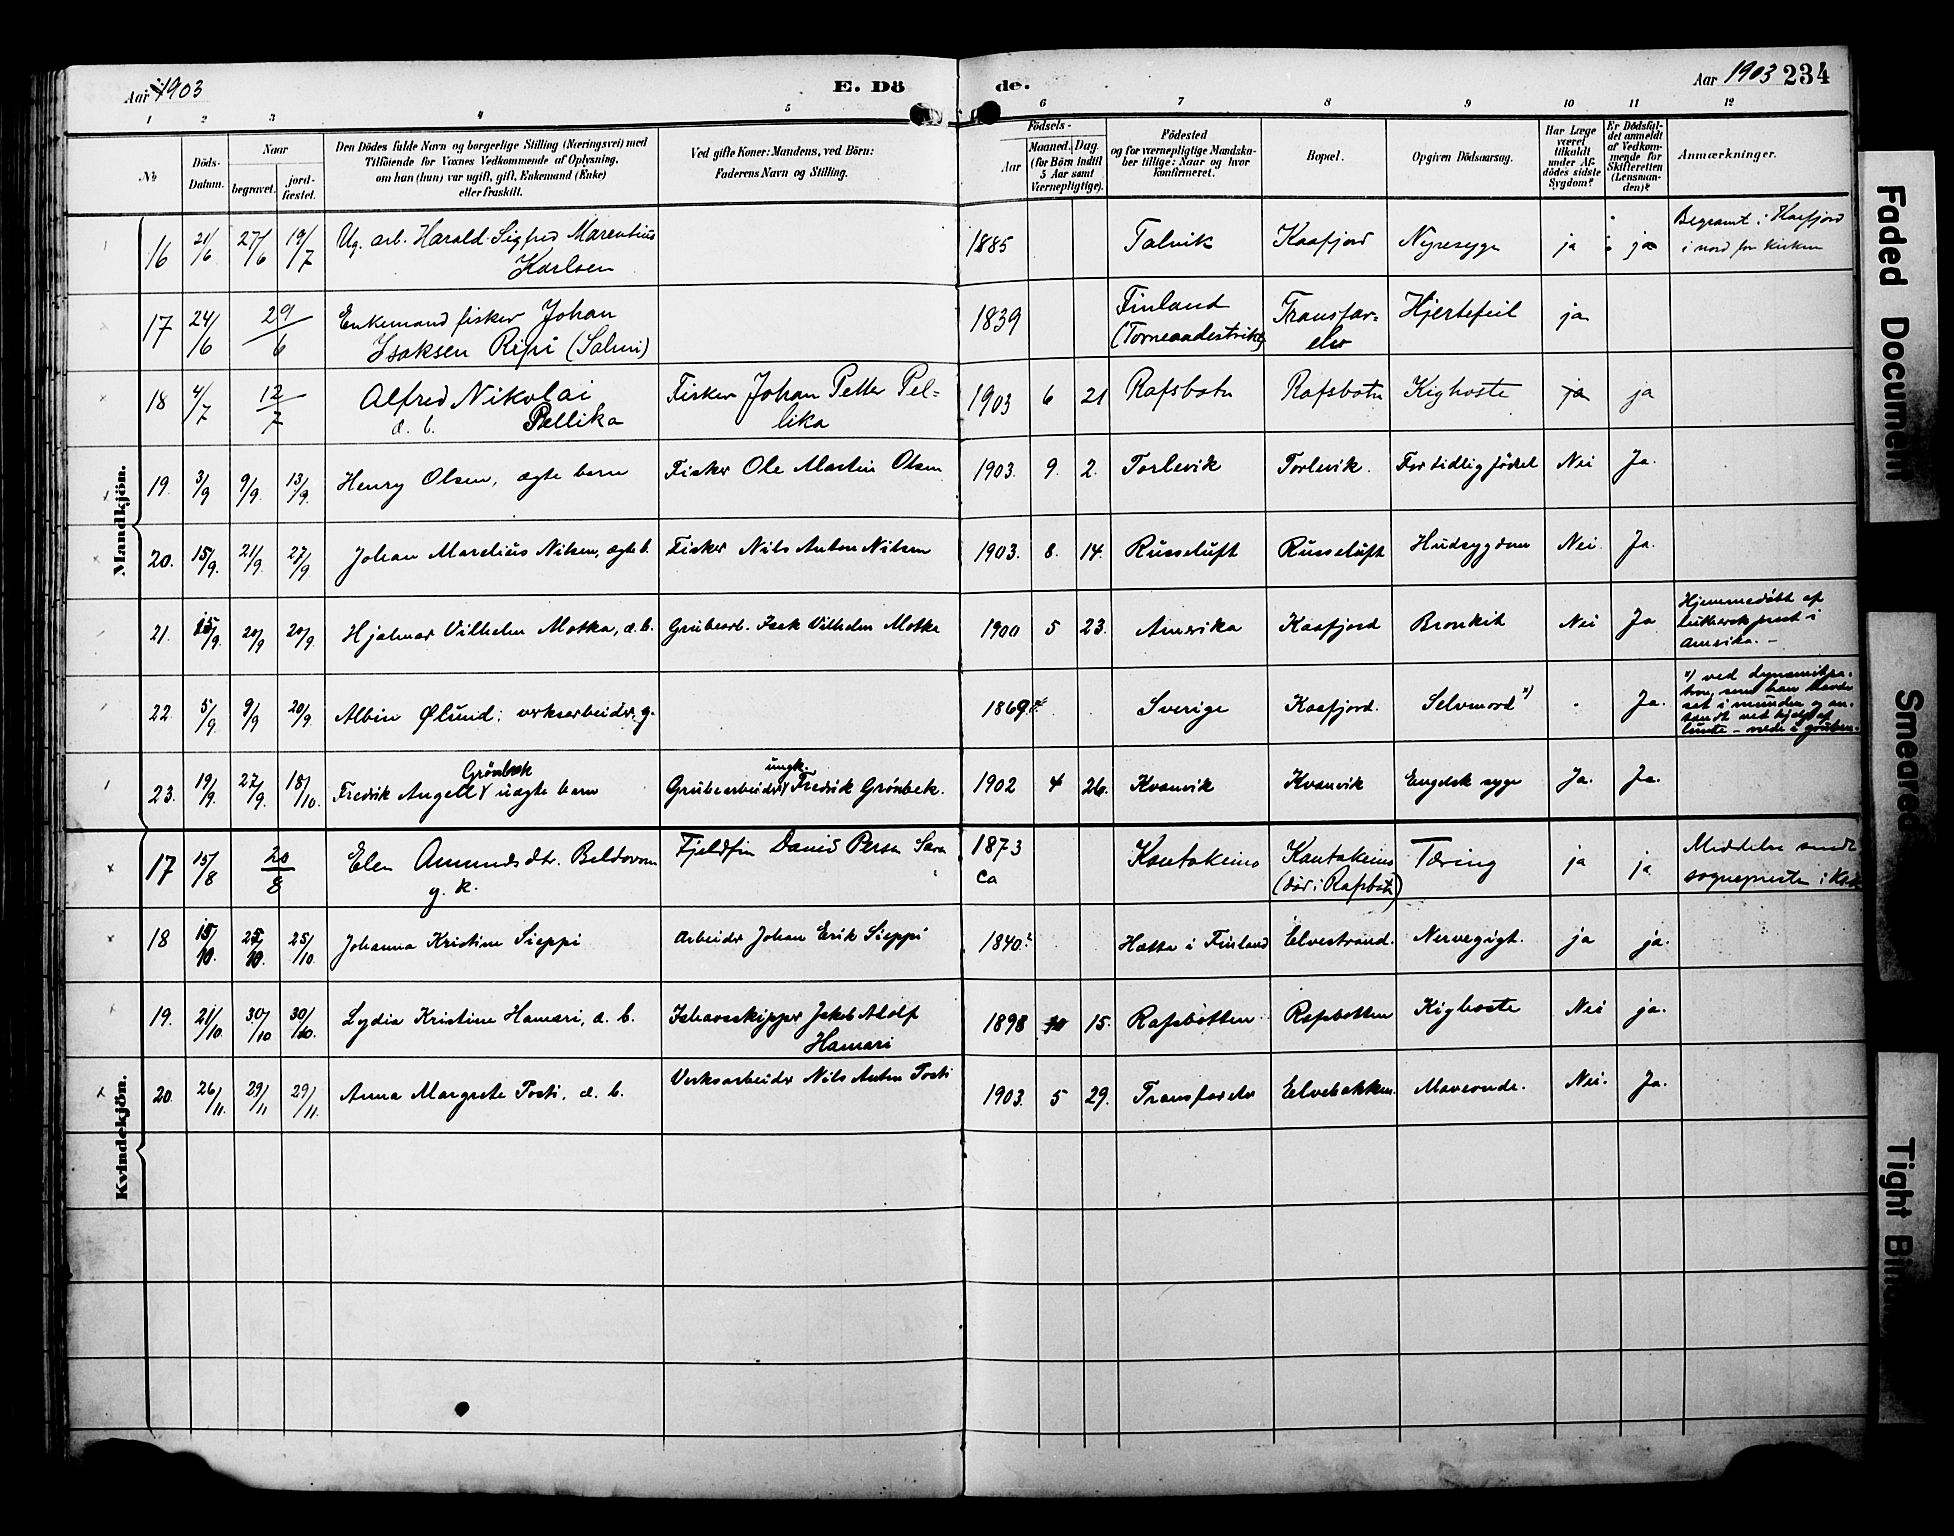 Aar 1903
E. Dö
de.
Aar 1903 234
1 2 3 4 5 6 7 8 9 10 11 12
No
Döds-Datum.
Naar
begravet.
jord-fæstet.
Den Dödes fulde Navn og borgerlige Stilling (Næringsvei) med
Tilföiende for Voxnes Vedkommende af Oplysning,
om han (hun) var ugift, gift, Enkemand (Enke)
eller fraskilt.
Ved gifte Koner: Mandens, ved Börn:
Faderens Navn og Stilling.
Födsels-
Aar
Maaned. Dag.
(for Börn indtil
5 Aar samt
Værnepligtige).
Födested
og for værnepligtige Mandska-
ber tillige: Naar og hvor
konfirmeret.
Bopæl.
Opgiven Dödsaarsag.
Har Læge
været
tilkaldt
under Af-
dödes sidste
Sygdom?
Er Dödsfal-
det anmeldt
af Vedkom-
mende for
Skifteretten
(Lensman-
den)?
Anmærkninger.
Mandkjön.
16 21/6 27/6 19/7 Ug. arb. Harald Sigfred Marentius Karlsen 1885 Talvik Kaafjord Nyresyge ja ja Begravet i Kaafjord i nord for kirken
17 24/6 29/6 Enkemand fisker Johan Isaksen Ripi (Salmi) 1839 Finland Transfar-elv Hjertefeil ja
18 4/7 12/7 Alfred Nikolai Pellika æ. b. Fisker Johan Petter Pel-lika 1903 6 21 Rafsbotn Rafsbotn Kighoste ja ja
19. 3/9 9/9. 13/9. Henry Olsen, ægte barn Fisker Ole Martin Olsen 1903. 9. 2. Torlevik Torlevik. For tidlig födel Nei Ja.
20. 15/9. 21/9. 27/9 Johan Marelius Nilsen, ægte b. Fisker Nils Anton Nilsen 1903. 8. 14. Russeluft Russeluft Hudsygdom Nei. Ja.
21. 15/9. 20/9 20/9. Hjalmar Vilhelm Motka, æ. b. Grubearb. Isak Vilhelm Motka 1900 5 23. Amerika Kaafjord Bronkit Nei Ja Hjemmedöbt af luthersk prest i Amerika. –
22. 5/9 9/9 20/9 Albin Ølund; verksarbeider, g. 1869 Sverige Kaafjord. Selvmord 1) Ja. 1) ved dynamitpa-tron, som han havde sat i munden og an-tændt ved hjelp af lunte – nede i gruben.
23. 19/9. 27/9. 18/10. Fredrik Angell Grönbek uægte barn Grubearbeider ungk. Fredrik Grönbek. 1902 4 26. Kvænvik Kvænvik Engelsk syge Ja. Ja.
Kvindekjön.
17 15/8 20/8 Elen Amundsdtr. g. k. Fjeldfin David Persen Sara 1873 ca Kautokeino Kautokeino (død i Rafsbotn) Tæring ja ja
18 15/10. 25/10. 25/10. Johanna Kristine Sieppi Arbeider Johan Erik Sieppi 1840 Hætta i Finland Elvestrand. Nervegigt. ja ja.
19. 21/10. 30/10 30/10. Lydia Kristine Hamari, æ. b. Ishavsskipper Jakob Adolf Hamari 1898 10 15. Rafsbotten Rafsbotten Kighoste Nei ja.
20 26/11. 29/11 29/11. Anna Margrete Posti, æ. b. Verksarbeider Nils Anton Posti 1903. 5 29. Transfarelv Elvebakken. Maveonde. Nei. Ja.
Faded Document
Smeared
Tight